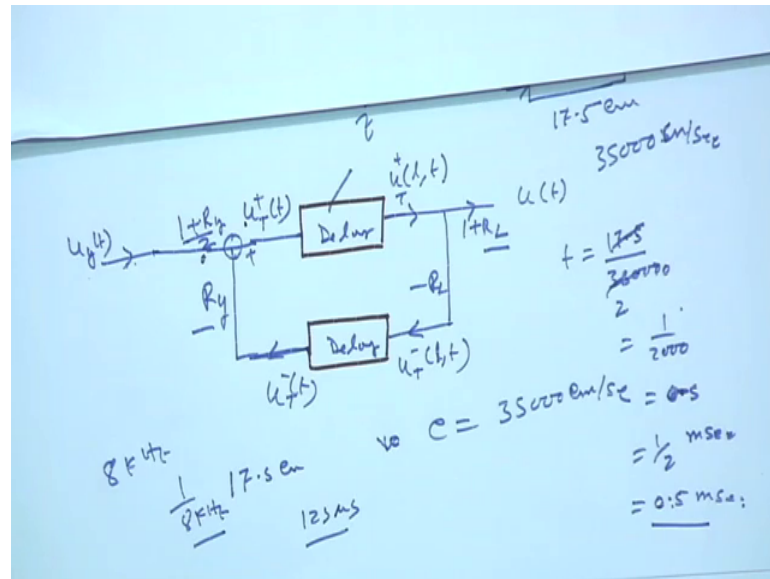 τ
17.5 cm
35000 cm/sec
u_g(t)
1+R_g
2
u_T^+(t)
Delay
u_T^+(l,t)
u(t)
1+R_L
R_g
-R_L
Delay
u_T^-(t)
u_T^-(l,t)
t = 17.5
35000
2
= 1
2000
c = 35000 cm/sec
= 0.5
= 1/2 msec
= 0.5 msec.
8 kHz
1
8kHz
17.5 cm
125 μs